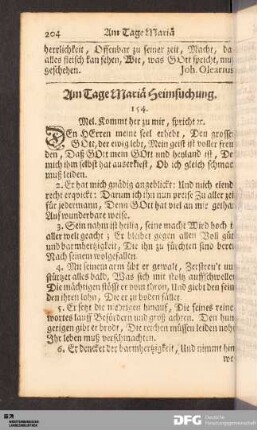 204 Am Tage Mariä
herrlichkeit, Offenbar zu seiner zeit, Macht, da
alles fleisch kan sehen, Wie, was GOtt spricht, mu
geschehen. Joh. Olearius
Am Tage Mariä Heimsuchung.
154.
Mel. Kommt her zu mir, spricht ꝛc.
DEn HErren meine seel erhebt, Den grosse
GOtt, der ewig lebt, Mein geist ist voller freu
den, Daß GOtt mein GOtt und heyland ist, De
mich ihm selbst hat auserkiest, Ob ich gleich schmac
muß leiden.
2. Er hat mich gnädig angeblickt: Und mich elend
recht erqvickt: Darum ich ihn nun preise Zu aller zeit
für jedermann, Denn GOtt hat viel an mir gethan
Auf wunderbare weise.
3. Sein nahm ist heilig, seine macht Wird hoch i
aller welt geacht; Er bleibet gegen allen Voll gün
und barmhertzigkeit, Die ihn zu fürchten sind berei
Nach seinem wolgefallen.
4. Mit seinem arm übt er gewalt, Zerstreu't un
stürtzet alles bald, Was sich mit stoltz auffschwellet
Die mächtigen stösst er vom thron, Und giebt den sein
den ihren lohn, Die er zu boden fället.
5. Er setzt die niedrigen hinauf, Die seines reine
wortes lauff Befördern und groß achten. Den hun
gerigen gibt er brodt, Die reichen müssen leiden noht
Ihr leben muß verschmachten.
6. Er dencket der barmhertzigkeit, Und nimmt hin
we
DFG